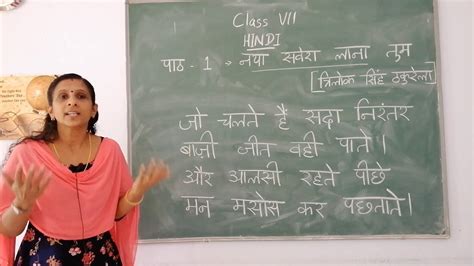 Class VII
HINDI
पाठ - 1 → नया सवेरा लाना तुम
[त्रिलोक सिंह ठकुरेला]
जो चलते हैं सदा निरंतर
बाज़ी जीत वही पाते।
और आलसी रहते पीछे
मन मसोस कर पछताते।